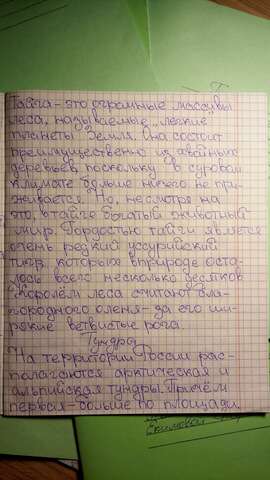 Тайга - это огромные массивы
леса, называемые "легкие"
планеты Земля. Она состоит
преимущественно из хвойных
деревьев, поскольку в суровом
климате больше ничего не при-
живается. Но, несмотря на
это, в тайге богатый животный
мир. Гордостью тайги является
очень редкий уссурийский
тигр, которых в природе оста-
лось всего несколько десятков
Королём леса считают бла-
городного оленя - за его ши-
рокие ветвистые рога.
Тундра
На территории России рас-
полагаются арктическая и
альпийская тундры. Причём
первая - больше по площади.